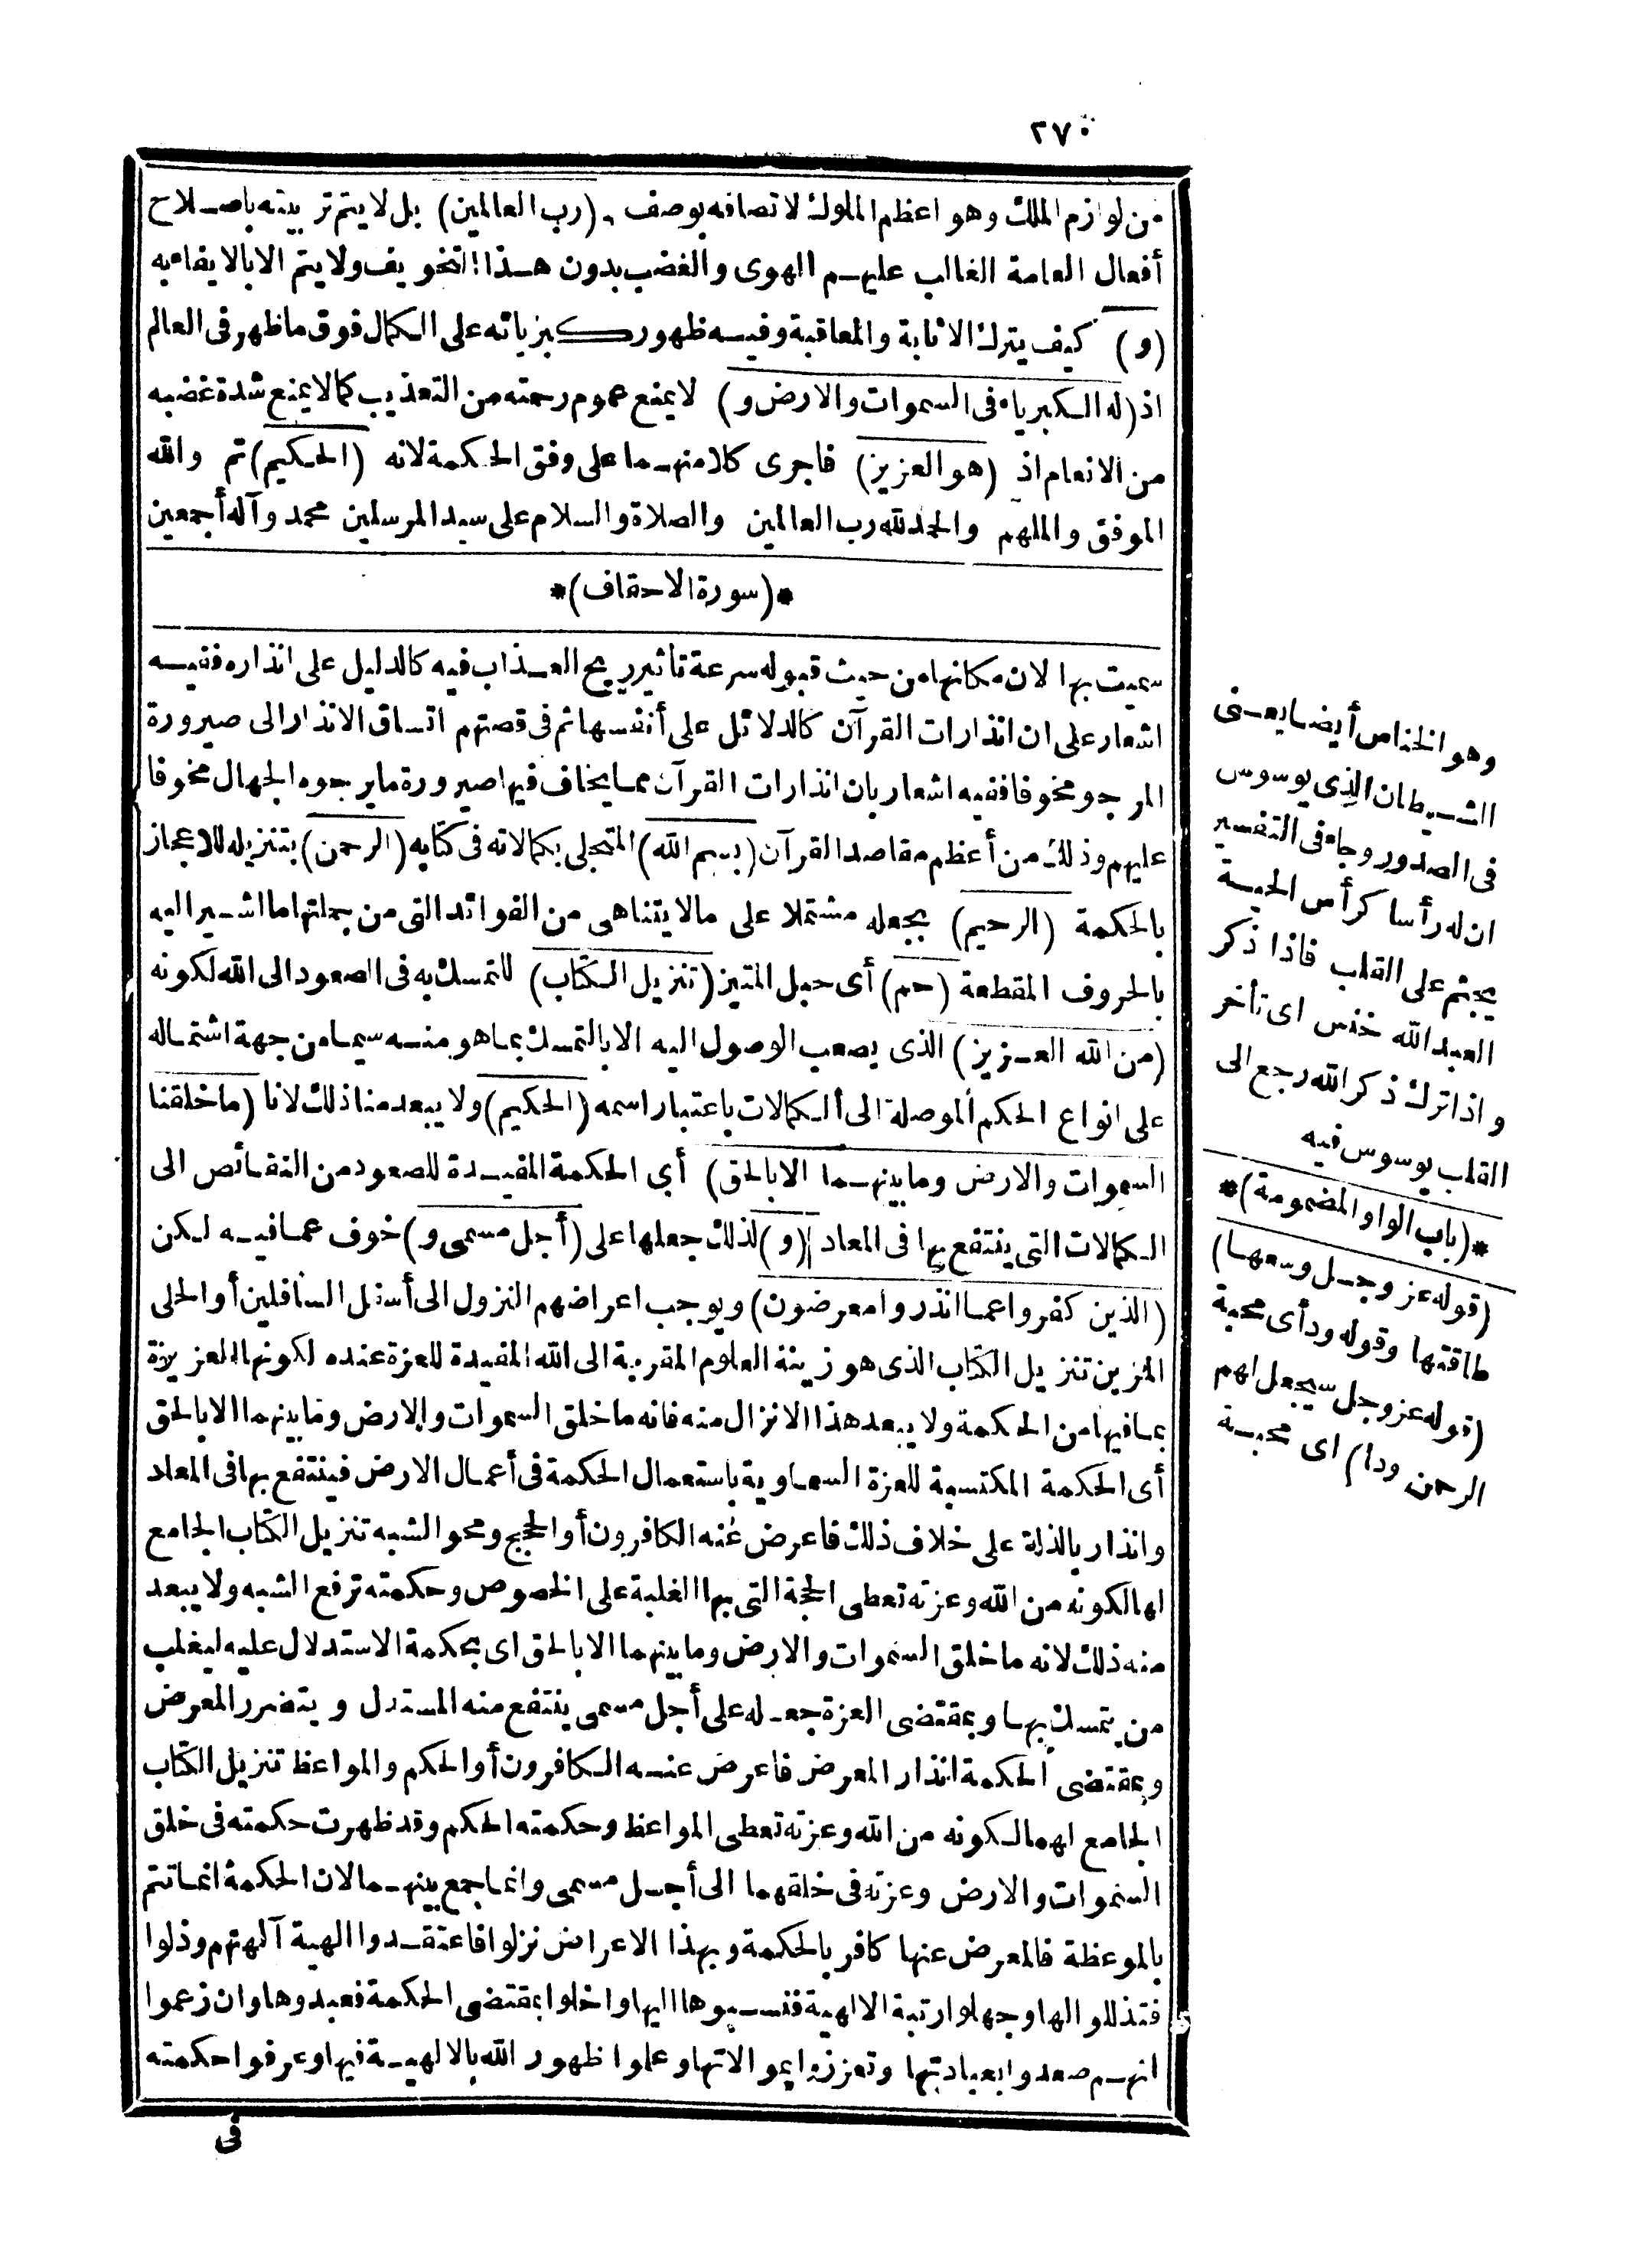 ٢٧٠
من لوازم الملك وهو اعظم الملوك لاتصافه بوصف (رب العالمين) بل لا يتم تربيته باصلاح
أفعال العامة الغالب عليهم الهوى والغضب بدون هذا التخويف ولا يتم الا بالايفاء به
(و) كيف يترك الاثابة والمعاقبة وفيه ظهور كبريائه على الكمال فوق ما ظهر فى العالم
اذ (له الكبرياء فى السموات والارض و) لا يمنع عموم رحمته من التعذيب كما لا يمنع شدة غضبه
من الانعام اذ (هو العزيز) فاجرى كلا منهما على وفق الحكمة لانه (الحكيم) تم والله
الموفق والملهم والحمد لله رب العالمين والصلاة والسلام على سيد المرسلين محمد وآله أجمعين
*(سورة الاحقاف)*
سميت بها لان مكانها من حيث قبوله سرعة تاثير ريح العذاب فيه كالدليل على انذاره ففيه
اشعار على ان انذارات القرآن كالدلائل على أنفسها ثم فى قصتهم اتساق الانذار الى صيرورة
المرجو مخوفا ففيه اشعار بان انذارات القرآن مما يخاف فيها صيرورة ما يرجوه الجهال مخوفا
عليهم وذلك من أعظم مقاصد القرآن (بسم الله) المتجلى بكمالاته فى كتابه (الرحمن) بتنزيله للاعجاز
بالحكمة (الرحيم) بجعله مشتملا على ما لا يتناهى من الفوائد التى من جملتها ما اشير اليه
بالحروف المقطعة (حم) أى حبل المتين (تنزيل الكتاب) للتمسك به فى الصعود الى الله لكونه
(من الله العزيز) الذى يصعب الوصول اليه الا بالتمسك بما هو منه سيما من جهة اشتماله
على انواع الحكم الموصلة الى الكمالات باعتبار اسمه (الحكيم) ولا يبعد منا ذلك لانا (ما خلقنا
السموات والارض وما بينهما الا بالحق) أى الحكمة المفيدة للصعود من النقائص الى
الكمالات التى ينتفع بها فى المعاد (و) لذلك جعلها على (أجل مسمى و) خوف عما فيه لكن
(الذين كفروا عما انذروا معرضون) ويوجب اعراضهم النزول الى أسفل السافلين أو الحلى
المزين تنزيل الكتاب الذى هو زينة العلوم المقربة الى الله المفيدة للعزة عنده لكونها العزيزة
بما فيها من الحكمة ولا يبعد هذا الانزال منه فانه ما خلق السموات والارض وما بينهما الا بالحق
أى الحكمة المكتسبة للعزة السماوية باستعمال الحكمة فى أعمال الارض فينتفع بها فى المعاد
وانذار بالذلة على خلاف ذلك فاعرض عنه الكافرون أو الحجج ومحو الشبه تنزيل الكتاب الجامع
لها لكونه من الله وعزته تعطى الحجة التى بها الغلبة على الخصوص وحكمته ترفع الشبه ولا يبعد
منه ذلك لانه ما خلق السموات والارض وما بينهما الا بالحق اى بحكمة الاستدلال عليه ليغلب
من يتمسك بها وبمقتضى العزة جعله على أجل مسمى ينتفع منه المستدل ويتضرر المعرض
وبمقتضى الحكمة انذار المعرض فاعرض عنه الكافرون أو الحكم والمواعظ تنزيل الكتاب
الجامع لهما لكونه من الله وعزته تعطى المواعظ وحكمته الحكم وقد ظهرت حكمته فى خلق
السموات والارض وعزته فى خلقهما الى أجل مسمى وانما جمع بينهما لان الحكمة انما تتم
بالموعظة فالمعرض عنها كافر بالحكمة وبهذا الاعراض نزلوا فاعتقدوا الهية آلهتهم وذلوا
فتذللوا لها وجهلوا رتبة الالهية فنسبوها اليها واخلوا بمقتضى الحكمة فعبدوها وان زعموا
انهم صعدوا بعبادتها وتعززوا بموالاتها وعلوا ظهور الله بالالهية فيها وعرفوا حكمته
فى
وهو الخناس أيضا يعنى
الشيطان الذى يوسوس
فى الصدور وجاء فى التفسير
ان له رأسا كرأس الحية
يجثم على القلب فاذا ذكر
العبد الله خنس اى تأخر
واذا ترك ذكر الله رجع الى
القلب يوسوس فيه
*(باب الواو المضمومة)*
(قوله عز وجل وسعها)
طاقتها وقوله ود أى محبة
(قوله عز وجل سيجعل لهم
الرحمن ودا) اى محبة